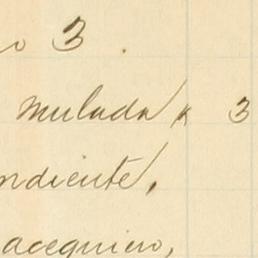 o 3.
mulada 3
ndiente,
acequiero,